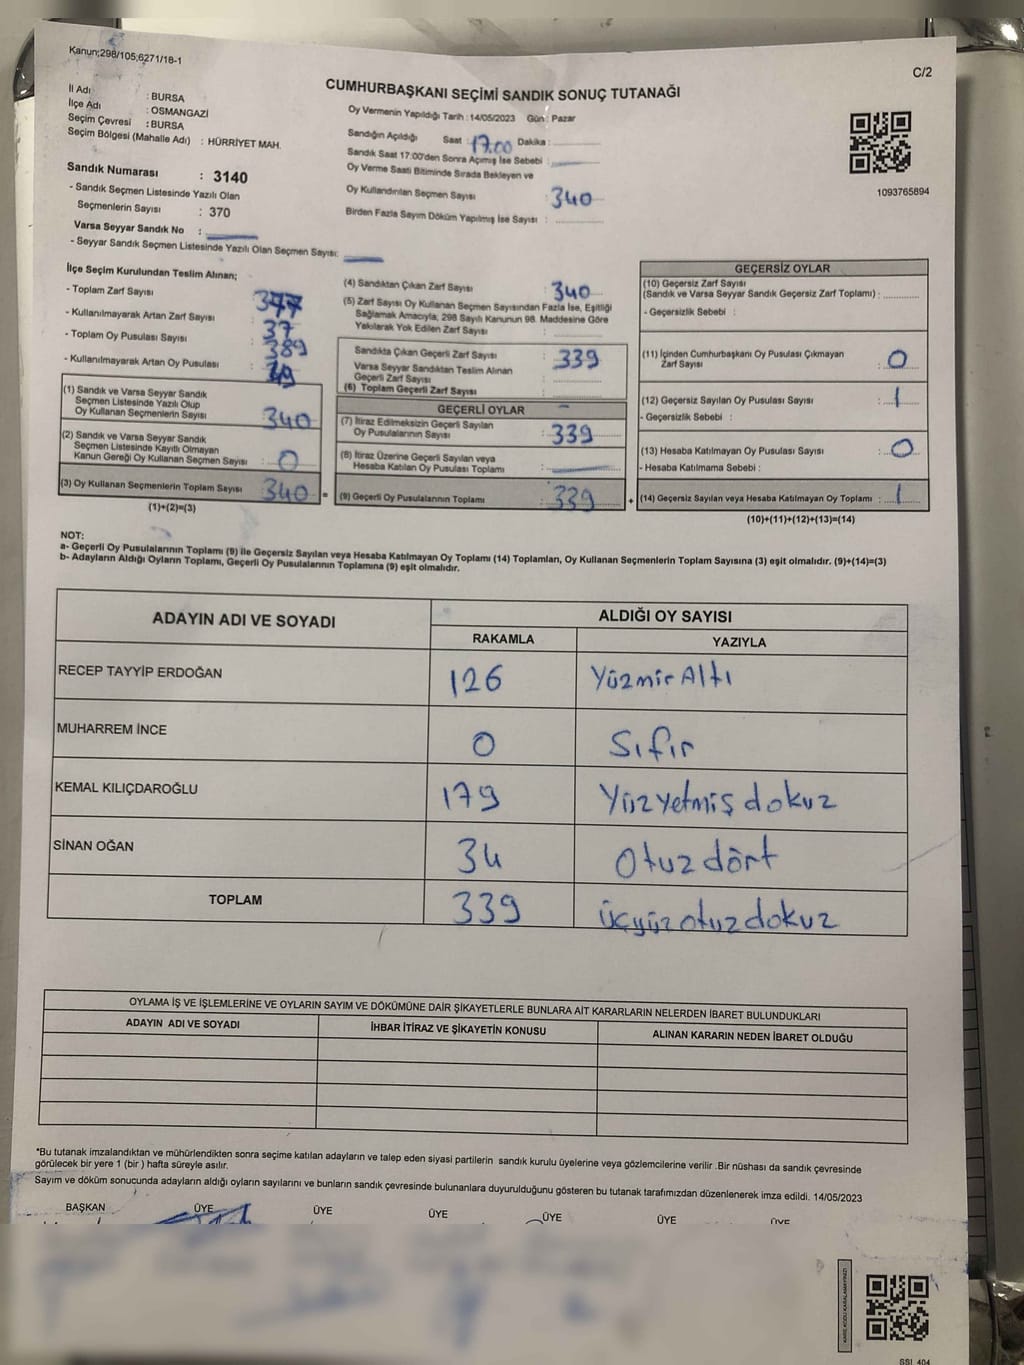 Kanun;298/105;6271/18-1
C/2
CUMHURBAŞKANI SEÇİMİ SANDIK SONUÇ TUTANAĞI
İl Adı : BURSA
İlçe Adı : OSMANGAZİ
Seçim Çevresi : BURSA
Seçim Bölgesi (Mahalle Adı) : HÜRRİYET MAH.
Oy Vermenin Yapıldığı Tarih : 14/05/2023 Gün : Pazar
Sandığın Açıldığı Saat : 17.00 Dakika :
Sandık Saat 17:00'den Sonra Açımış İse Sebebi :
Oy Verme Saati Bitiminde Sırada Bekleyen ve
Oy Kullandırılan Seçmen Sayısı 340
Birden Fazla Sayım Döküm Yapılmış İse Sayısı :
1093765894
Sandık Numarası : 3140
- Sandık Seçmen Listesinde Yazılı Olan
Seçmenlerin Sayısı : 370
Varsa Seyyar Sandık No :
- Seyyar Sandık Seçmen Listesinde Yazılı Olan Seçmen Sayısı:
İlçe Seçim Kurulundan Teslim Alınan;
- Toplam Zarf Sayısı : 377
- Kullanılmayarak Artan Zarf Sayısı : 37
- Toplam Oy Pusulası Sayısı : 389
- Kullanılmayarak Artan Oy Pusulası :
(1) Sandık ve Varsa Seyyar Sandık
Seçmen Listesinde Yazılı Olup
Oy Kullanan Seçmenlerin Sayısı 340
(2) Sandık ve Varsa Seyyar Sandık
Seçmen Listesinde Kayıtlı Olmayan
Kanun Gereği Oy Kullanan Seçmen Sayısı : 0
(3) Oy Kullanan Seçmenlerin Toplam Sayısı 340 =
(1)+(2)=(3)
(4) Sandıktan Çıkan Zarf Sayısı 340
(5) Zarf Sayısı Oy Kullanan Seçmen Sayısından Fazla İse, Eşitliği
Sağlamak Amacıyla, 298 Sayılı Kanunun 98. Maddesine Göre
Yakılarak Yok Edilen Zarf Sayısı :
Sandıkta Çıkan Geçerli Zarf Sayısı : 339
Varsa Seyyar Sandıktan Teslim Alınan
Geçerli Zarf Sayısı :
(6) Toplam Geçerli Zarf Sayısı :
GEÇERLİ OYLAR
(7) İtiraz Edilmeksizin Geçerli Sayılan
Oy Pusulalarının Sayısı : 339
(8) İtiraz Üzerine Geçerli Sayılan veya
Hesaba Katılan Oy Pusulası Toplamı :
(9) Geçerli Oy Pusulalarının Toplamı : 339 +
GEÇERSİZ OYLAR
(10) Geçersiz Zarf Sayısı
(Sandık ve Varsa Seyyar Sandık Geçersiz Zarf Toplamı) :
- Geçersizlik Sebebi :
(11) İçinden Cumhurbaşkanı Oy Pusulası Çıkmayan
Zarf Sayısı : 0
(12) Geçersiz Sayılan Oy Pusulası Sayısı : 1
- Geçersizlik Sebebi :
(13) Hesaba Katılmayan Oy Pusulası Sayısı : 0
- Hesaba Katılmama Sebebi :
(14) Geçersiz Sayılan veya Hesaba Katılmayan Oy Toplamı : 1
(10)+(11)+(12)+(13)=(14)
NOT:
a- Geçerli Oy Pusulalarının Toplamı (9) ile Geçersiz Sayılan veya Hesaba Katılmayan Oy Toplamı (14) Toplamları, Oy Kullanan Seçmenlerin Toplam Sayısına (3) eşit olmalıdır. (9)+(14)=(3)
b- Adayların Aldığı Oyların Toplamı, Geçerli Oy Pusulalarının Toplamına (9) eşit olmalıdır.
ADAYIN ADI VE SOYADI ALDIĞI OY SAYISI
RAKAMLA YAZIYLA
RECEP TAYYİP ERDOĞAN 126 Yüzmir Altı
MUHARREM İNCE 0 Sıfır
KEMAL KILIÇDAROĞLU 179 Yüzyetmiş dokuz
SİNAN OĞAN 34 Otuz dört
TOPLAM 339 üçyüz otuz dokuz
OYLAMA İŞ VE İŞLEMLERİNE VE OYLARIN SAYIM VE DÖKÜMÜNE DAİR ŞİKAYETLERLE BUNLARA AİT KARARLARIN NELERDEN İBARET BULUNDUKLARI
ADAYIN ADI VE SOYADI İHBAR İTİRAZ VE ŞİKAYETİN KONUSU ALINAN KARARIN NEDEN İBARET OLDUĞU
*Bu tutanak imzalandıktan ve mühürlendikten sonra seçime katılan adayların ve talep eden siyasi partilerin sandık kurulu üyelerine veya gözlemcilerine verilir .Bir nüshası da sandık çevresinde
görülecek bir yere 1 (bir ) hafta süreyle asılır.
Sayım ve döküm sonucunda adayların aldığı oyların sayılarını ve bunların sandık çevresinde bulunanlara duyurulduğunu gösteren bu tutanak tarafımızdan düzenlenerek imza edildi. 14/05/2023
BAŞKAN ÜYE ÜYE ÜYE ÜYE ÜYE ÜYE
KARE KODU KARALAMAYINIZ!
SSI 404